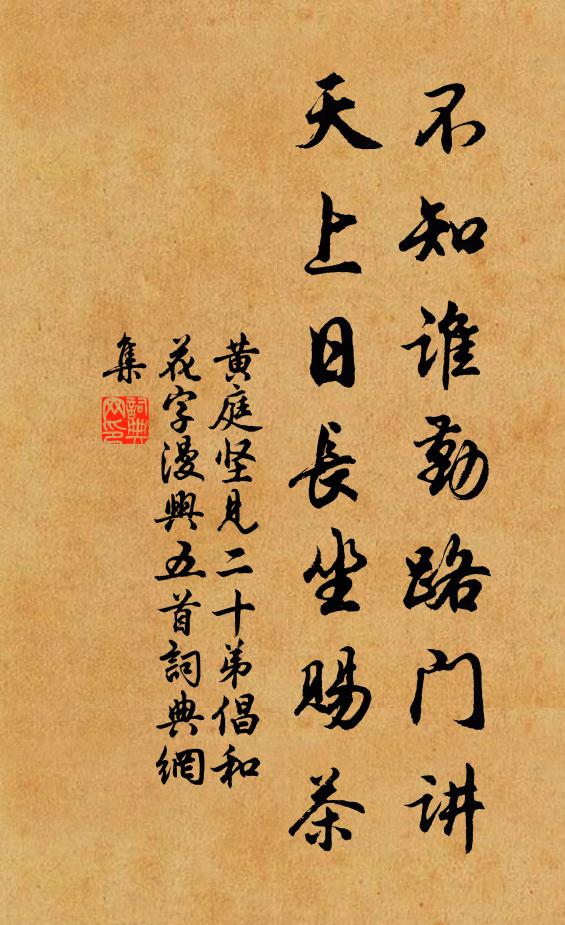 不知谁勤路门讲
天上日長坐賜茶
黄庭坚見二十弟倡和
花字漫興五首詞典網
集
詞典
网印